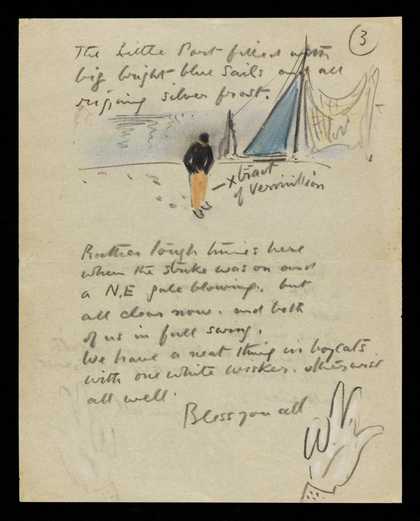 3
The Little Port filled with
big bright blue sails and all
rigging silver frost.
x tract
of vermillion
Rather tough times here
when the strike was on and
a N.E gale blowing. but
all clear now. and both
of us in full swing.
We have a neat thing in boycats
with one white wisker. otherwise
all well.
Bless you all
W.N.